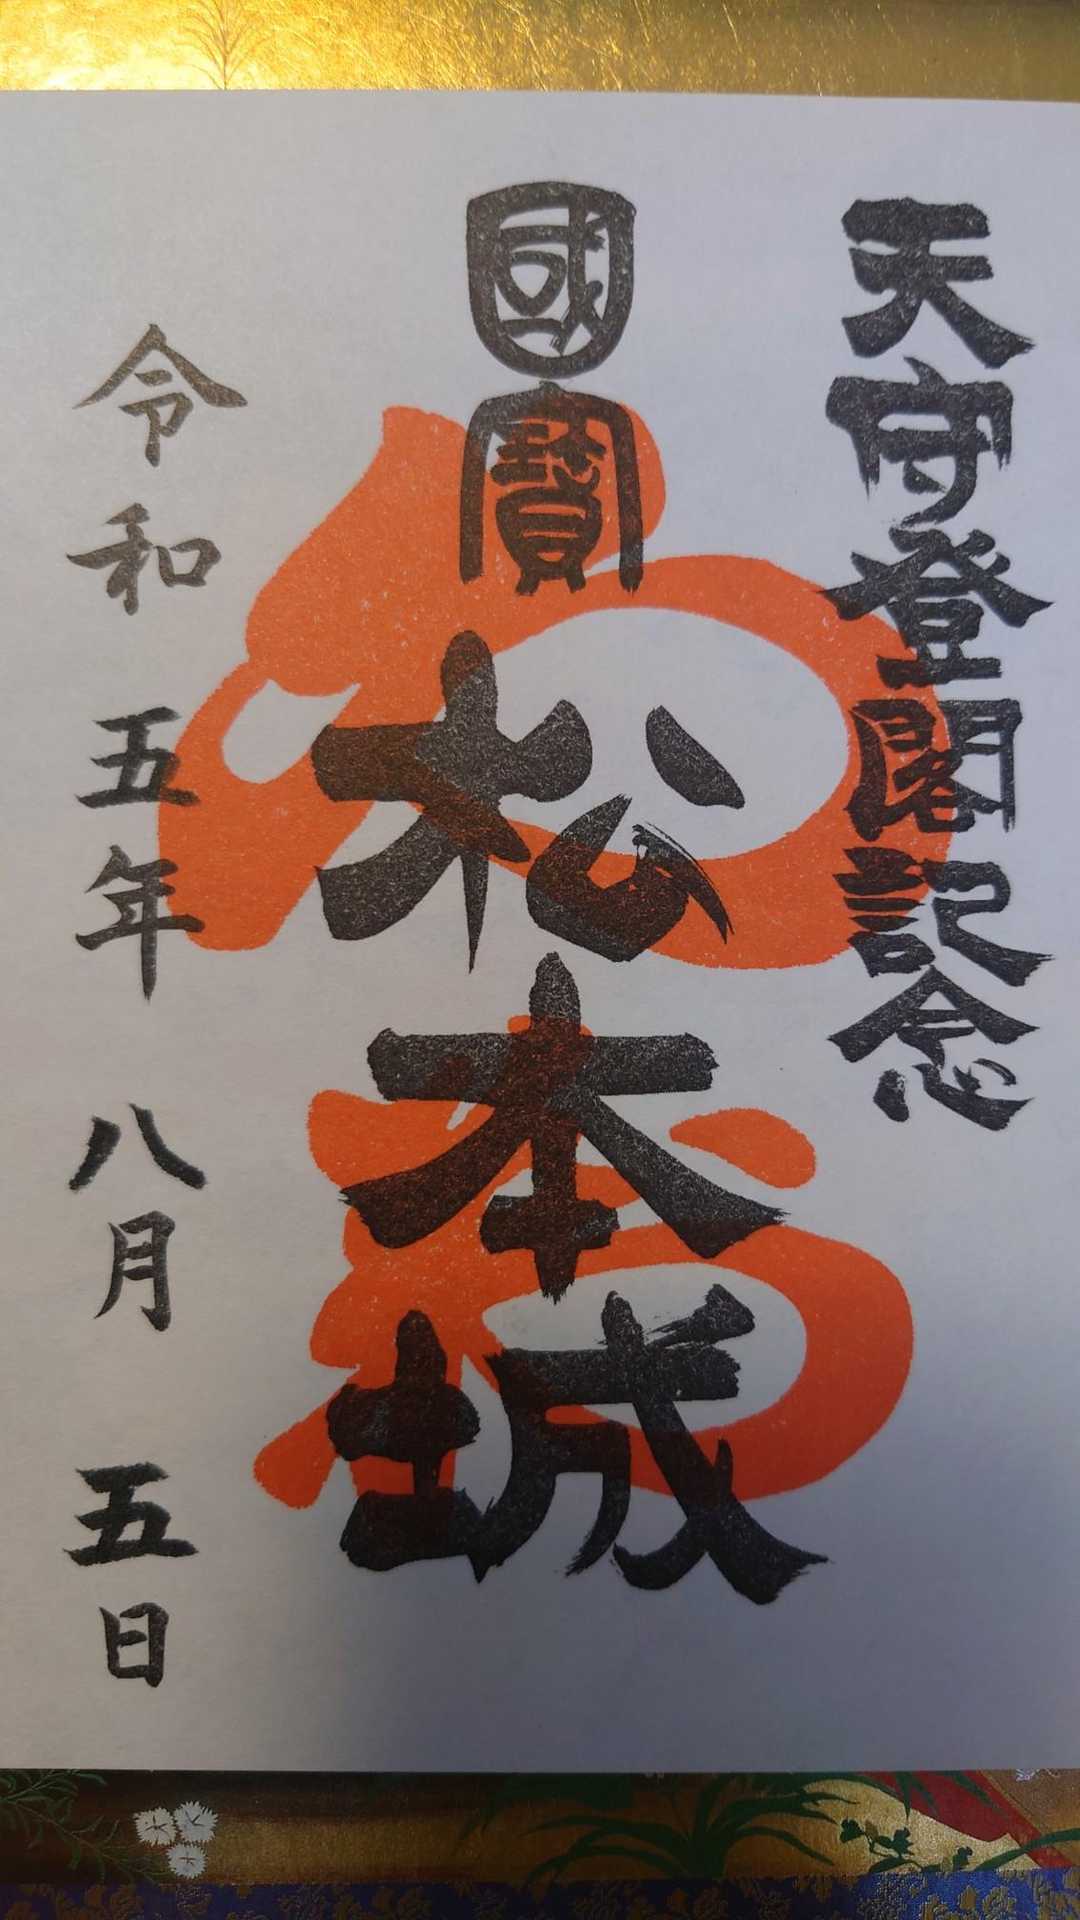 天守登閣記念
國寶 松本城
令和 五年 八月 五日